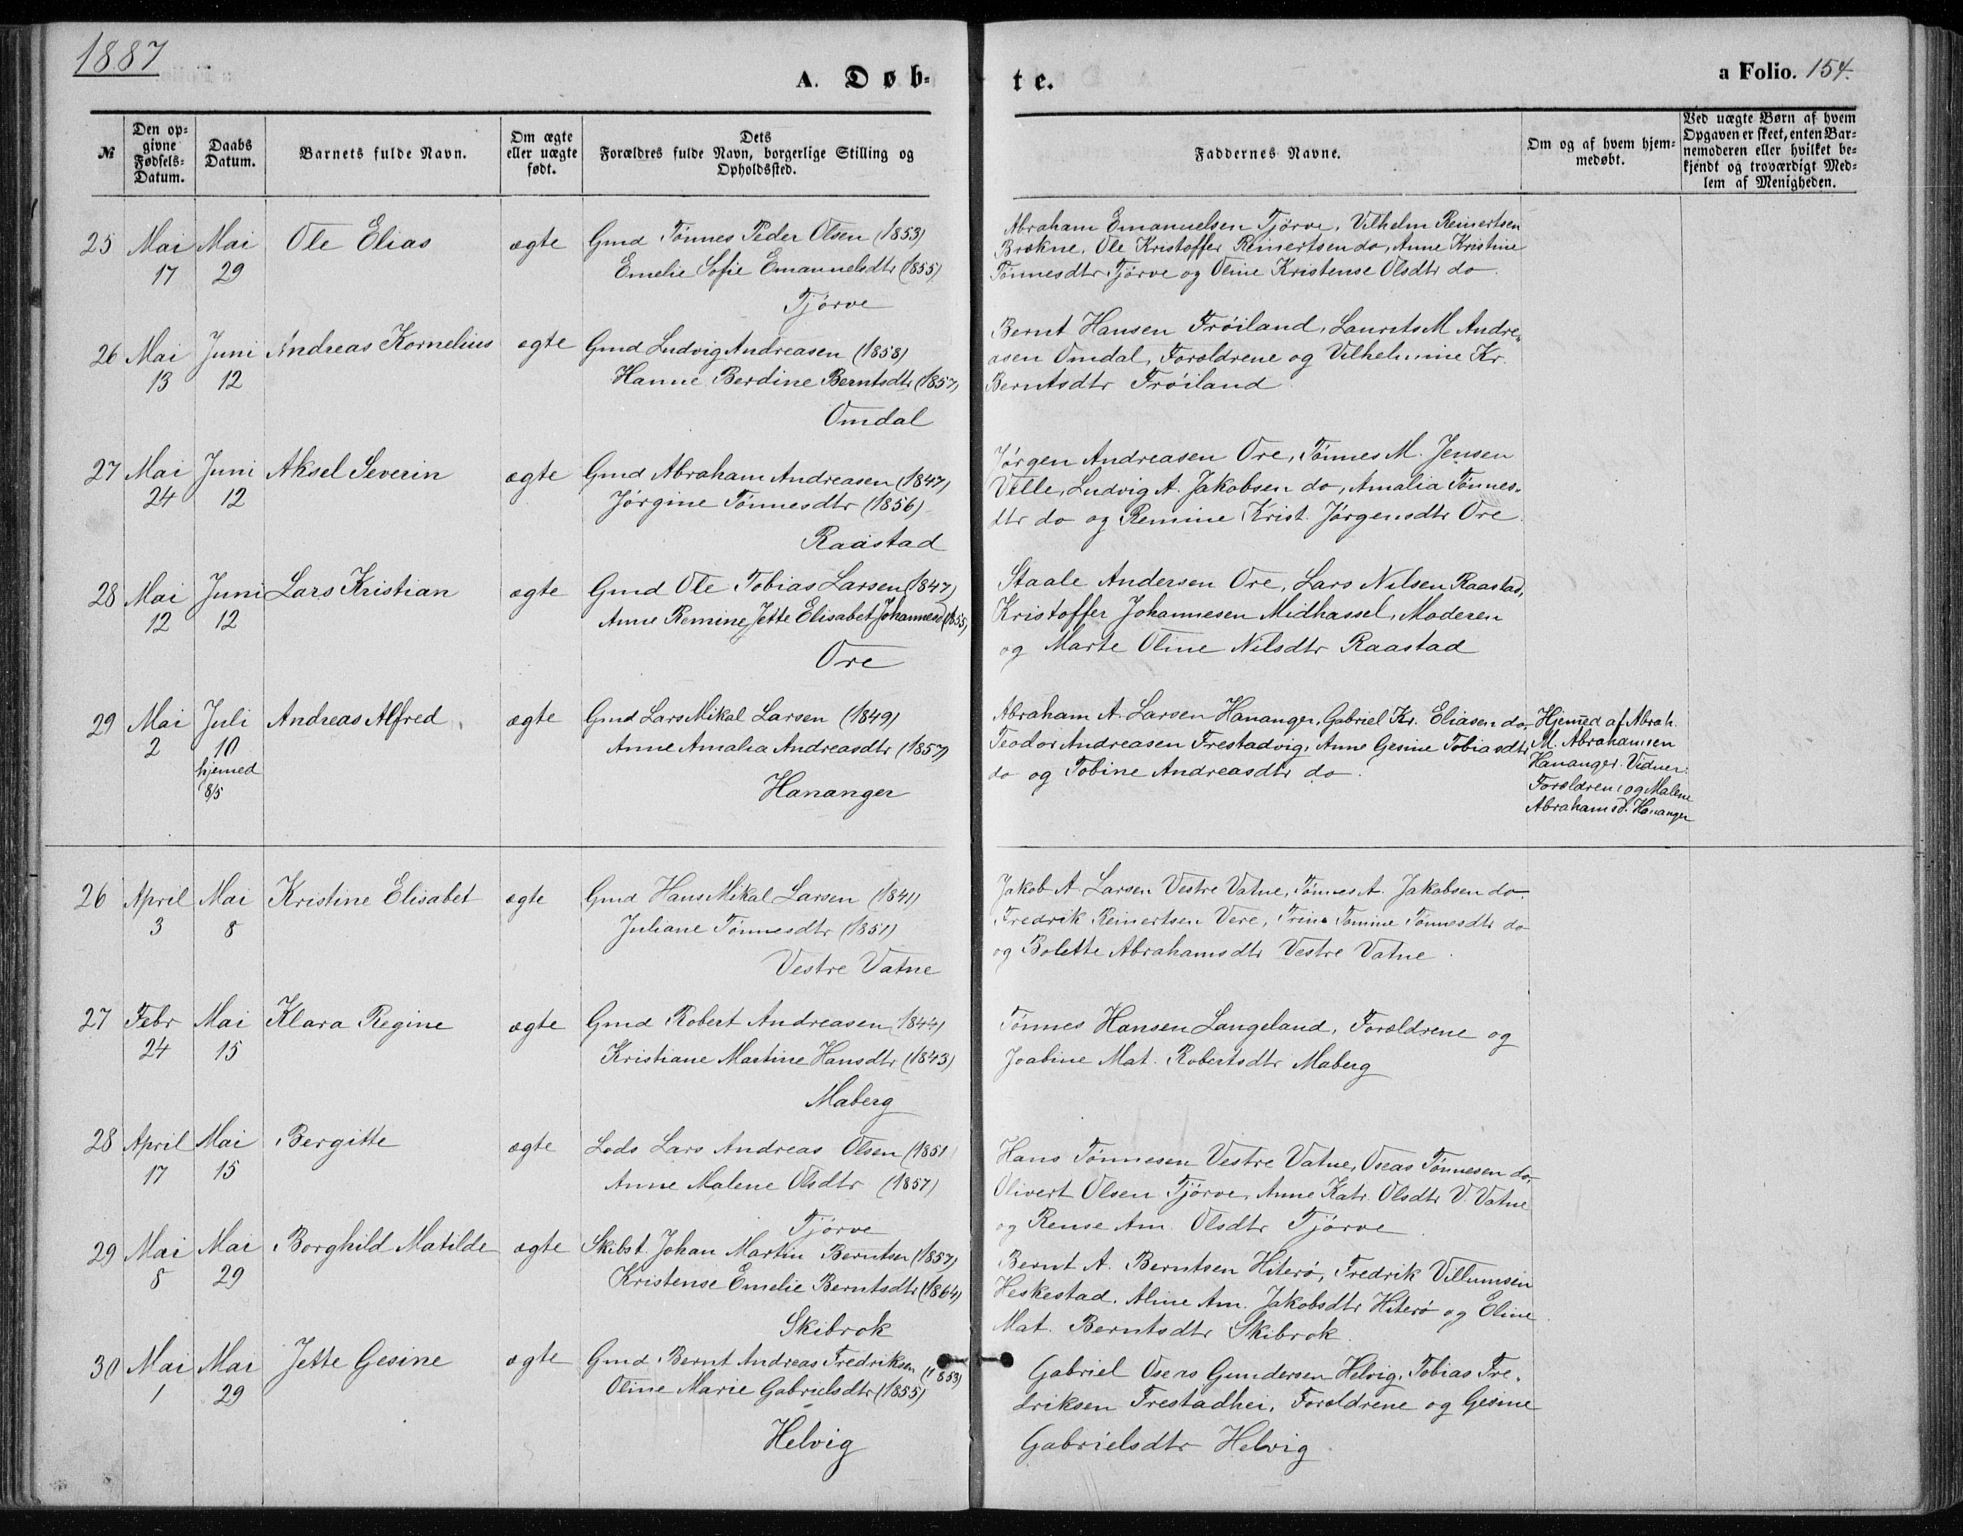 1887
A. Døb-
te.
a Folio. 154.
№
Den op-
givne
Fødsels-
Datum.
Daabs
Datum.
Barnets fulde Navn.
Om ægte
eller uægte
født.
Dets
Forældres fulde Navn, borgerlige Stilling og
Opholdssted.
Faddernes Navne.
Om og af hvem hjem-
medøbt.
Ved uægte Børn af hvem
Opgaven er skeet, enten Bar-
nemoderen eller hvilket be-
kjendt og troværdigt Med-
lem af Menigheden.
25 Mai 17 Mai 29 Ole Elias ægte Gmd Tønnes Peder Olsen (1853)
Emelie Sofie Emanuelsdtr (1855)
Tjørve
Abraham Emanuelsen Tjørve, Vilhelm Reinertsen
Brækne, Ole Kristoffer Reinertsen do, Anne Kristine
Tønnesdtr Tjørve og Oline Kristense Olsdtr do
26 Mai 13 Juni 12 Andreas Kornelius ægte Gmd Ludvig Andreasen (1858)
Hanne Berdine Berntsdtr (1857)
Omdal
Bernt Hansen Frøiland, Laurits M Andre-
asen Omdal, Forældrene og Vilhelmine Kr.
Berntsdtr Frøiland
27 Mai 24 Juni 12 Aksel Severin ægte Gmd Abraham Andreasen (1847)
Jørgine Tønnesdtr (1856)
Raastad
Jørgen Andreasen Ore, Tønnes M. Jensen
Velle, Ludvig A. Jakobsen do, Amalia Tønnes-
dtr do og Remine Krist. Jørgensdtr Ore
28 Mai 12 Juni 12 Lars Kristian ægte Gmd Ole Tobias Larsen (1847)
Anne Remine Jette Elisabet Johannesd (1855)
Ore
Staale Andersen Ore, Lars Nilsen Raastad,
Kristoffer Johannesen Midhassel, Moderen
og Marte Oline Nilsdtr Raastad
29 Mai 2 Juli 10 hjemed 8/5 Andreas Alfred ægte Gmd Lars Mikal Larsen (1849)
Anne Amalia Andreasdtr (1857)
Hananger
Abraham A. Larsen Hananger, Gabriel Kr. Eliasen do,
Teodor Andreasen Frestadvig, Anne Gesine Tobiasdtr
do og Tobine Andreasdtr do.
Hjemed af Abrah.
M. Abrahamsen
Hananger. Vidner:
Forældren, og Malene
Abrahamsd. Hananger
26 April 3 Mai 8 Kristine Elisabet ægte Gmd Hans Mikal Larsen (1841)
Juliane Tønnesdtr (1851)
Vestre Vatne
Jakob A. Larsen Vestre Vatne, Tønnes A. Jakobsen do
Fredrik Reinertsen Vere, Trine Tomine Tønnesdtr do
og Bolette Abrahamsdtr Vestre Vatne
27 Febr 24 Mai 15 Klara Regine ægte Gmd Robert Andreasen (1844)
Kristiane Martine Hansdtr (1843)
Maberg
Tønnes Hansen Langeland, Forældrene og
Joabine Mat. Robertsdtr Maberg
28 April 17 Mai 15 Bergitte ægte Lods Lars Andreas Olsen (1851
Anne Malene Olsdtr (1857)
Tjørve
Hans Tønnesen Vestre Vatne, Oseas Tønnesen do,
Olivert Olsen Tjørve, Anne Katr. Olsdtr V. Vatne
og Rense Am. Olsdtr Tjørve
29 Mai 8 Mai 29 Borghild Matilde ægte Skibst. Johan Martin Berntsen (1857)
Kristense Emelie Berntsdtr (1864)
Skibrok
Bernt A. Berntsen Hiterø, Fredrik Villumsen
Heskestad, Aline Am. Jakobsdtr Hiterø og Eline
Mat. Berntsdtr Skibrok
30 Mai 1 Mai 29 Jette Gesine ægte Gmd Bernt Andreas Fredriksen (1853)
Oline Marie Gabrielsdtr (1855)
Helvig
Gabriel Oseas Gundersen Helvig, Tobias Fre-
driksen Frestadhei, Forældrene og Gesine
Gabrielsdtr Helvig